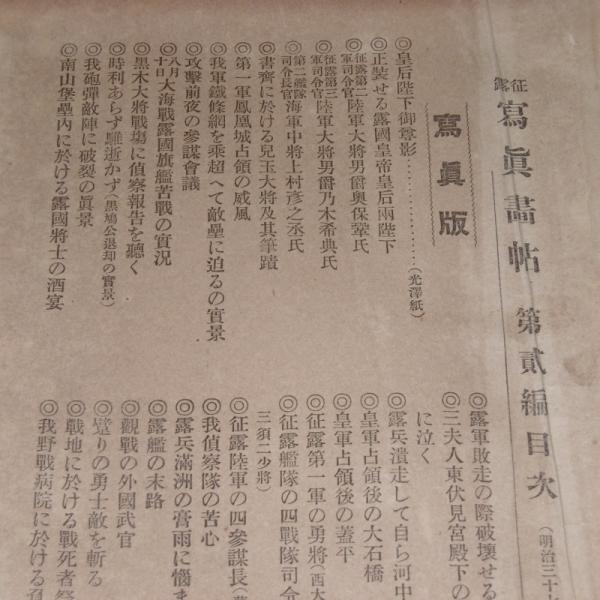 征露寫眞畵帖 第貳編目次
(明治三十
寫眞版
◎皇后陛下御尊影‥‥‥‥‥‥(光澤紙)
◎正裝せる露國皇帝皇后兩陛下
◎征露第二軍司令官陸軍大將男爵奧保鞏氏
◎征露第三軍司令官陸軍大將男爵乃木希典氏
◎第二艦隊司令長官海軍中將上村彥之丞氏
◎書齊に於ける兒玉大將及其筆蹟
◎第一軍鳳凰城占領の威風
◎我軍鐵條網を乘超へて敵壘に迫るの實景
◎攻擊前夜の參謀會議
◎八月十日大海戰露國旗艦苦戰の實況
◎黑木大將戰塲に偵察報告を聽く
◎時利あらず騅逝かず(黑鳩公退却の實景)
◎我砲彈敵陣に破裂の眞景
◎南山堡壘內に於ける露國將士の酒宴
◎露軍敗走の際破壞せる
◎三夫人東伏見宮殿下の
に泣く
◎露兵潰走して自ら河中
◎皇軍占領後の大石橋
◎皇軍占領後の蓋平
◎征露第一軍の勇將(西大
◎征露艦隊の四戰隊司令
三須二少將)
◎征露陸軍の四參謀長
◎我偵察隊の苦心
◎露兵滿洲の膏雨に惱ま
◎露艦の末路
◎觀戰の外國武官
◎りの勇士敵を斬る
◎戰地に於ける戰死者祭
◎我野戰病院に於ける